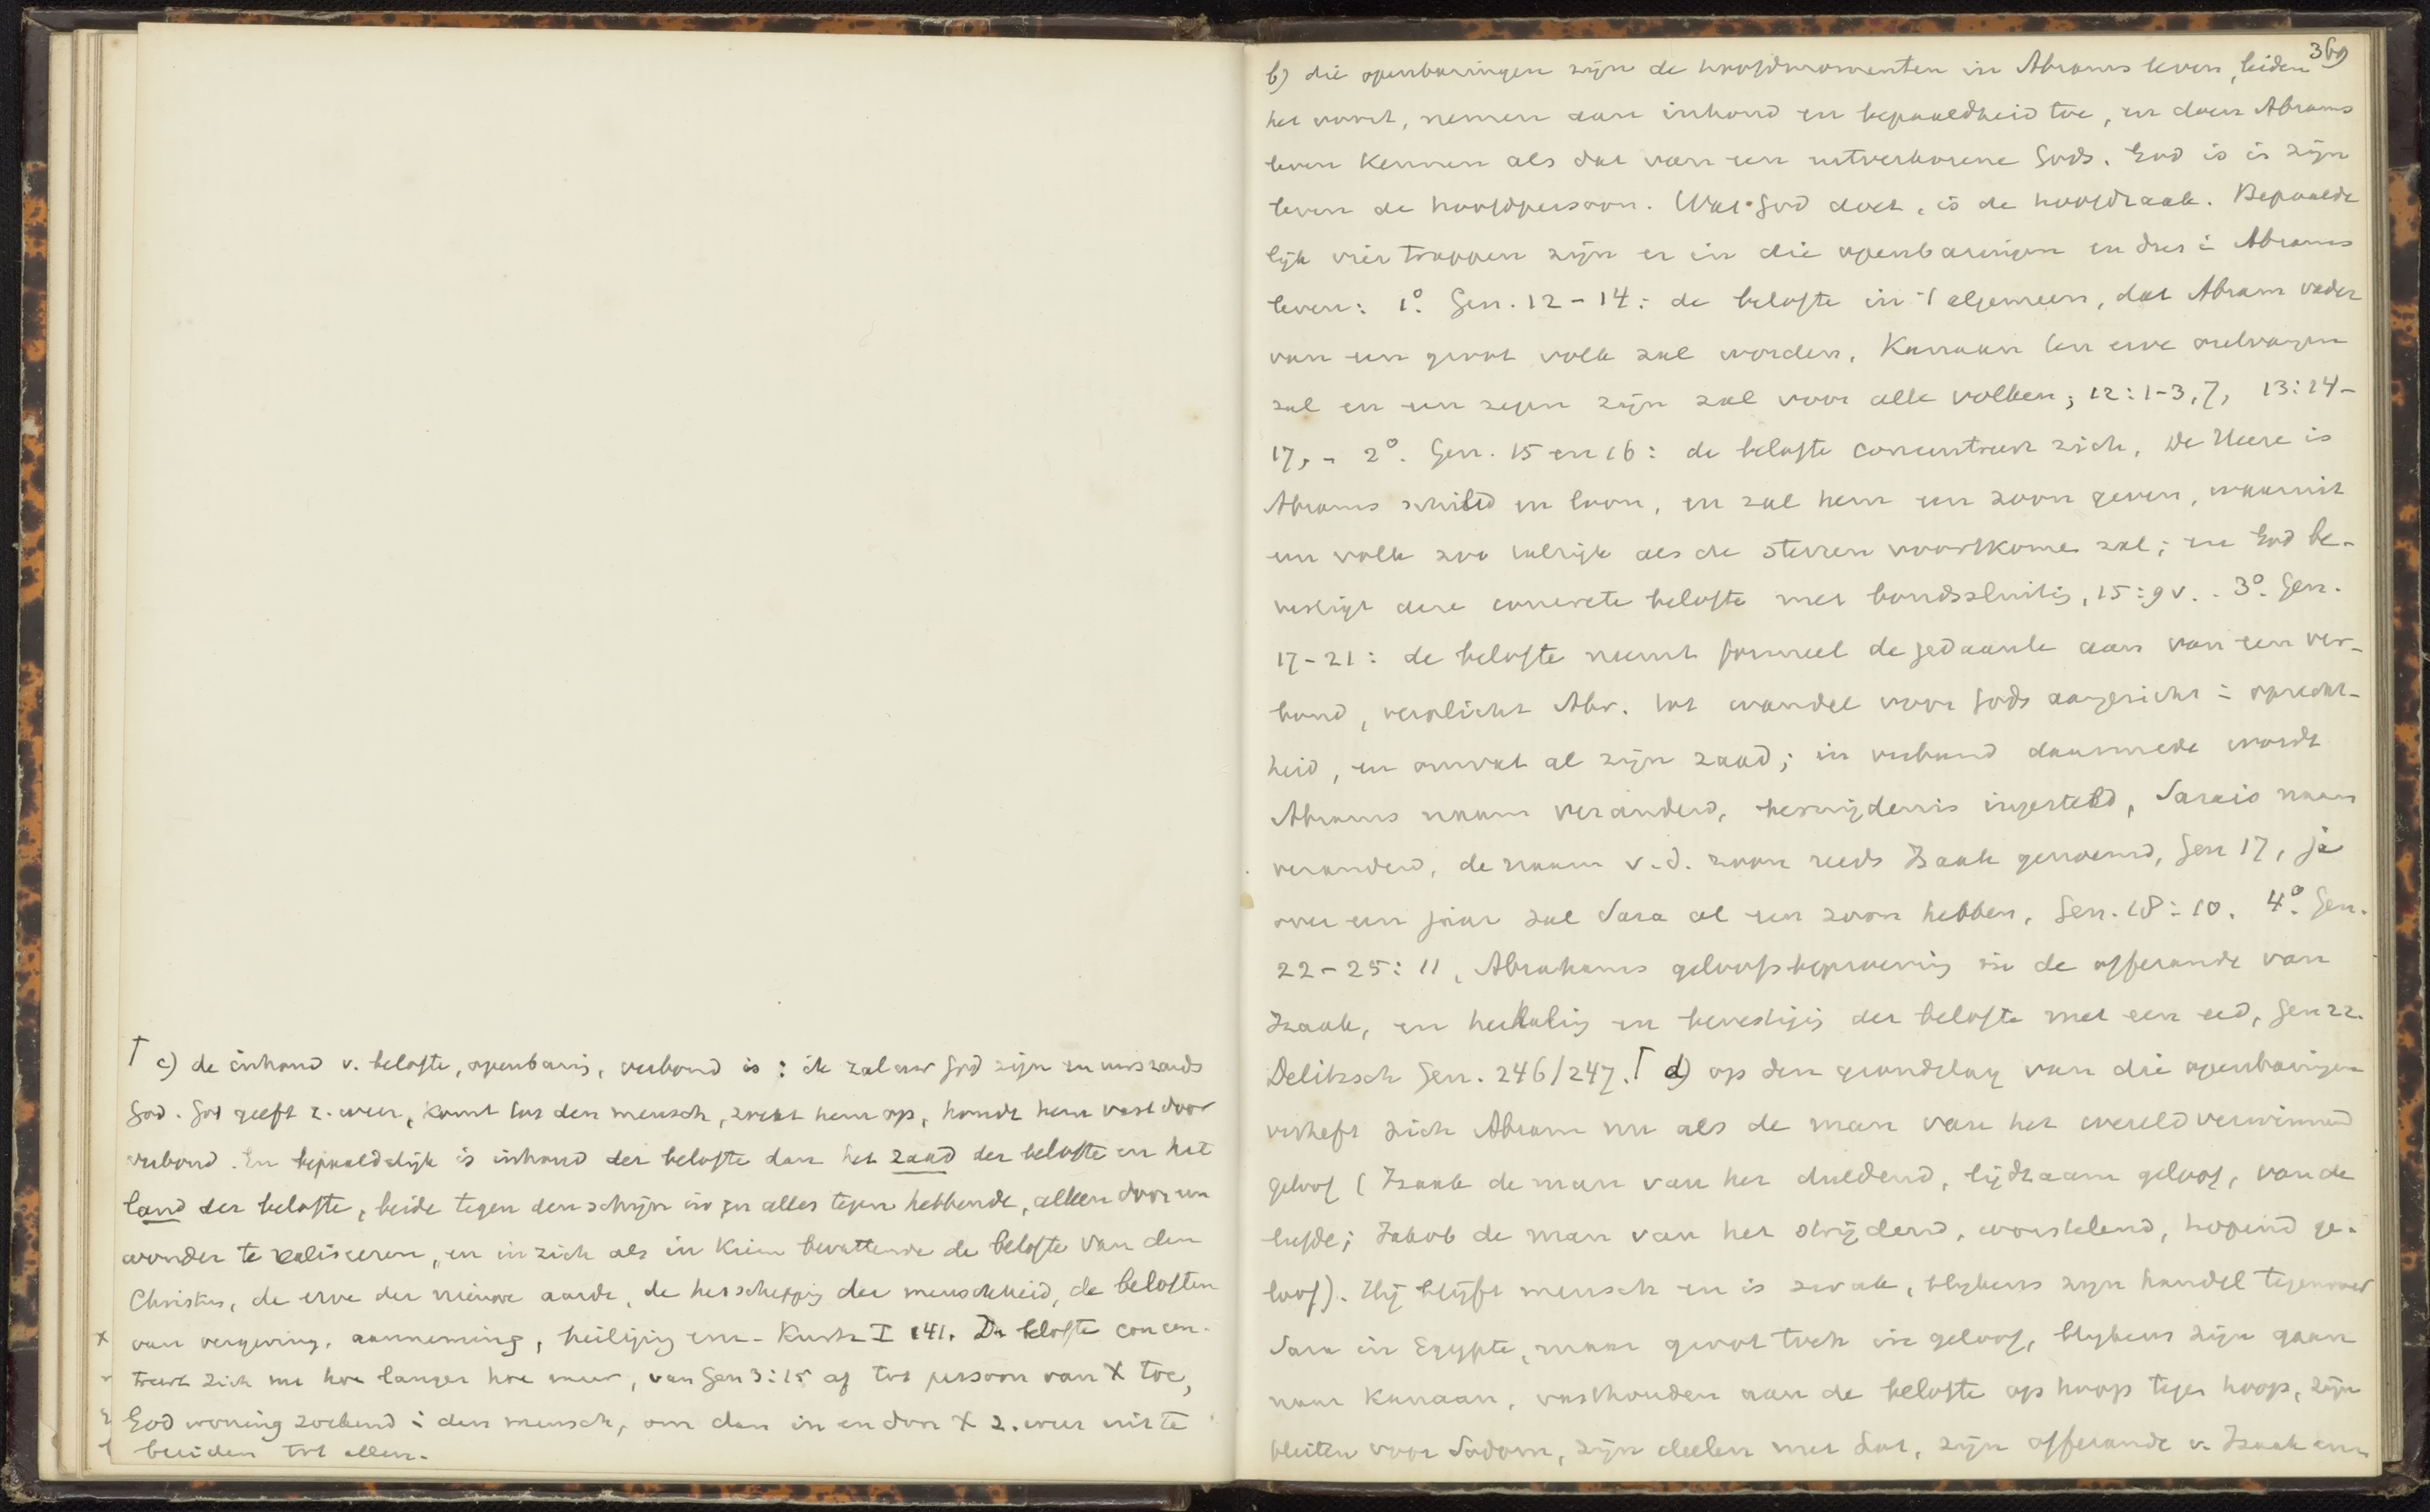 ⌈ c) de inhoud v. belofte, openbaring, verbond is: ik zal uw God zijn en uws zaads
God. God geeft z. weer, komt tot den mensch, zoekt hem op, houdt hem vast door
verbond. En bepaaldelijk is inhoud der belofte dan het zaad der belofte en het
land der belofte, beide tegen den schijn in en alles tegen hebbende, alleen door een
wonder te realiseeren, en in zich als in kiem bevattende de belofte van den
Christus, de erve der nieuwe aarde, de herschepping der menschheid, de beloften
van vergeving, aanneming, heiliging enz. Kurtz I 141. De belofte concen-
treert zich nu hoe langer hoe meer, van Gen 3:15 af tot persoon van X toe,
God woning zoekend i den mensch, om dan in en door X z. weer uit te
breiden tot allen.
369
b) die openbaringen zijn de hoofdmomenten in Abrams leven, leiden
het voort, nemen aan inhoud en bepaaldheid toe, en doen Abrams
leven kennen als dat van een uitverkorene Gods. God is in zijn
leven de hoofdpersoon. Wat God doet, is de hoofdzaak. Bepaalde
lijk vier trappen zijn er in die openbaringen en dus i Abrams
leven: 1º. Gen. 12-14: de belofte in 't algemeen, dat Abram vader
van een groot volk zal worden, Kanaan ten erve ontvangen
zal en een zegen zijn zal voor alle volken; 12:1-3, 7, 13:14-
17, - 2º. Gen. 15 en 16: de belofte concentreert zich, De Heere is
Abrams schild en loon, en zal hem een zoon geven, waaruit
een volk zoo talrijk als de sterren voortkomen zal; en God be-
vestigt deze concrete belofte met bondssluiting, 15:9 v. - 3º. Gen.
17-21: de belofte neemt formeel de gedaante aan van een ver-
bond, verplicht Abr. tot wandel voor Gods aangezicht i oprecht-
heid, en omvat al zijn zaad; in verband daarmede wordt
Abrams naam veranderd, besnijdenis ingesteld, Sarais naam
veranderd, de naam v.d. zoon reeds Izaak genoemd, Gen 17, ja
over een jaar zal Sara al een zoon hebben, Gen. 18:10. 4º. Gen.
22-25:11, Abrahams geloofsbeproeving in de offerande van
Izaak, en herhaling en bevestiging der belofte met een eed, Gen 22.
Delitzsch Gen. 246/247. ⌈ d) op den grondslag van die openbaringen
verheft zich Abram nu als de man van het wereldverwinnend
geloof (Izaak de man van het duldend, lijdzaam geloof, van de
liefde; Jakob de man van het strijdend, worstelend, hopend ge-
loof). Hij blijft mensch en is zwak, blijkens zijn handel tegenover
Sara in Egypte, maar groot toch in geloof, blijkens zijn gaan
naar Kanaan, vasthouden aan de belofte op hoop tegen hoop, zijn
pleiten voor Sodom, zijn deelen met Lot, zijn offerande v. Izaak enz.